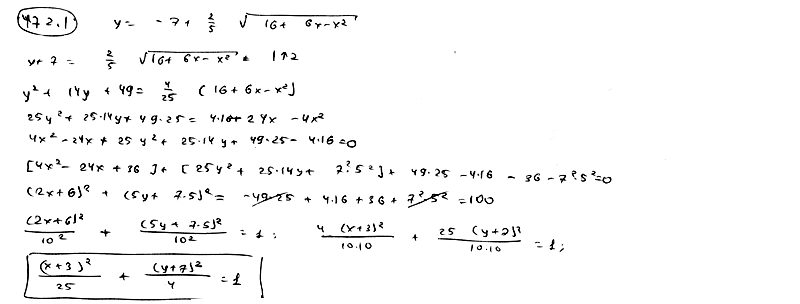 472.1 y = - 7 + 2/5 √(16 + 6x - x²)
y + 7 = 2/5 √(16 + 6x - x²) 1↑2
y² + 14y + 49 = 4/25 (16 + 6x - x²]
25y² + 25·14y + 49·25 = 4·16 + 24x - 4x²
4x² - 24x + 25y² + 25·14y + 49·25 - 4·16 = 0
[4x² - 24x + 36] + [25y² + 25·14y + 7²·5²] + 49·25 - 4·16 - 36 - 7²·5² = 0
(2x+6)² + (5y + 7·5)² = -49·25 + 4·16 + 36 + 7²·5² = 100
(2x+6)²/10² + (5y + 7·5)²/10² = 1; 4 (x+3)²/10·10 + 25 (y+7)²/10·10 = 1;
(x+3)²/25 + (y+7)²/4 = 1